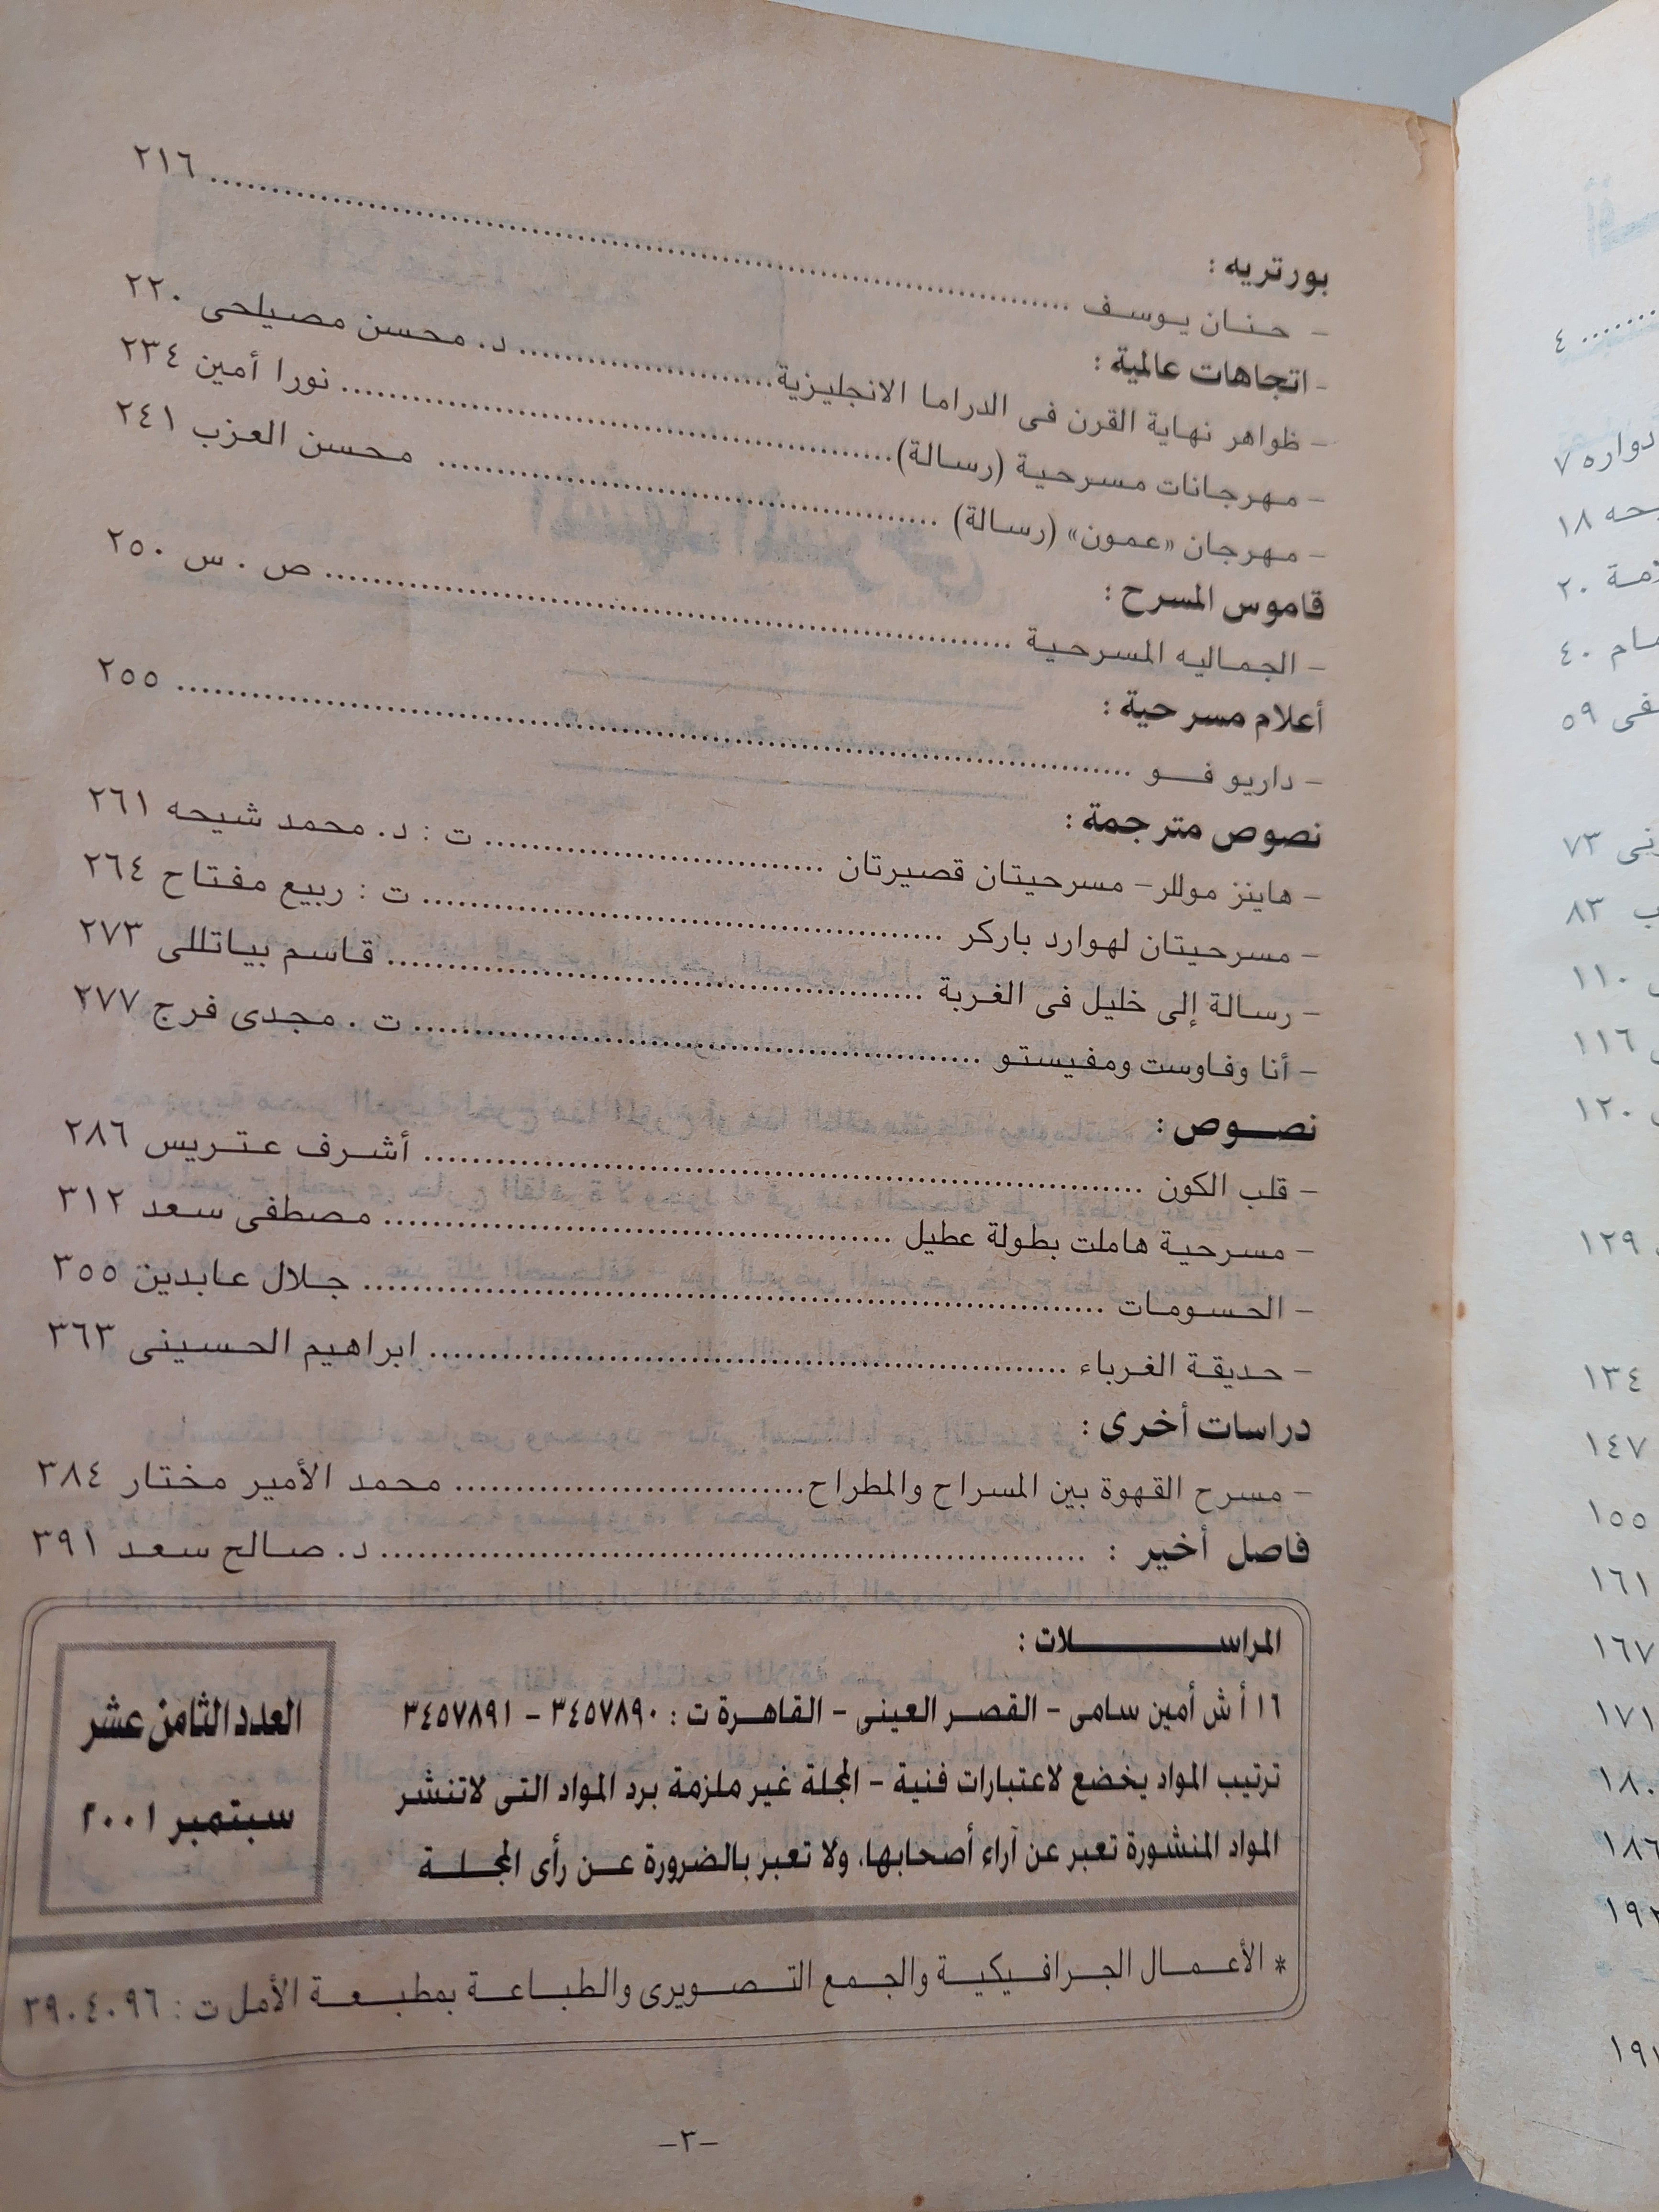 بورتريه :
- حنان يوسف ........ ٢١٦
- اتجاهات عالمية :
- ظواهر نهاية القرن فى الدراما الانجليزية ........ د. محسن مصيلحى ٢٢٠
- مهرجانات مسرحية (رسالة) ........ نورا أمين ٢٣٤
- مهرجان «عمون» (رسالة) ........ محسن العزب ٢٤١
قاموس المسرح :
- الجماليه المسرحية ........ ص . س ٢٥٠
أعلام مسرحية :
- داريو فو ........ ٢٥٥
نصوص مترجمة :
- هاينز موللر- مسرحيتان قصيرتان ........ ت : د. محمد شيحه ٢٦١
- مسرحيتان لهوارد باركر ........ ت : ربيع مفتاح ٢٦٤
- رسالة إلى خليل فى الغربة ........ قاسم بياتللى ٢٧٣
- أنا وفاوست ومفيستو ........ ت . مجدى فرج ٢٧٧
نصوص :
- قلب الكون ........ أشرف عتريس ٢٨٦
- مسرحية هاملت بطولة عطيل ........ مصطفى سعد ٣١٢
- الحسومات ........ جلال عابدين ٣٥٥
- حديقة الغرباء ........ ابراهيم الحسينى ٣٦٣
دراسات أخرى :
- مسرح القهوة بين المسراح والمطراح ........ محمد الأمير مختار ٣٨٤
فاصل أخير : ........ د. صالح سعد ٣٩١
المراسلات :
١٦ أ ش أمين سامى - القصر العينى - القاهرة ت : ٣٤٥٧٨٩٠ - ٣٤٥٧٨٩١
ترتيب المواد يخضع لاعتبارات فنية - المجلة غير ملزمة برد المواد التى لاتنشر
المواد المنشورة تعبر عن آراء أصحابها، ولا تعبر بالضرورة عن رأى المجلة
العدد الثامن عشر
سبتمبر ٢٠٠١
* الأعمال الجرافيكية والجمع التصويرى والطباعة بمطبعة الأمل ت : ٣٩٠٤٠٩٦
-٣-
٤
دواره ٧
١٨
٢٠
٤٠
٥٩
٧٣
٨٣
١١٠
١١٦
١٢٠
١٢٩
١٣٤
١٤٧
١٥٥
١٦١
١٦٧
١٧١